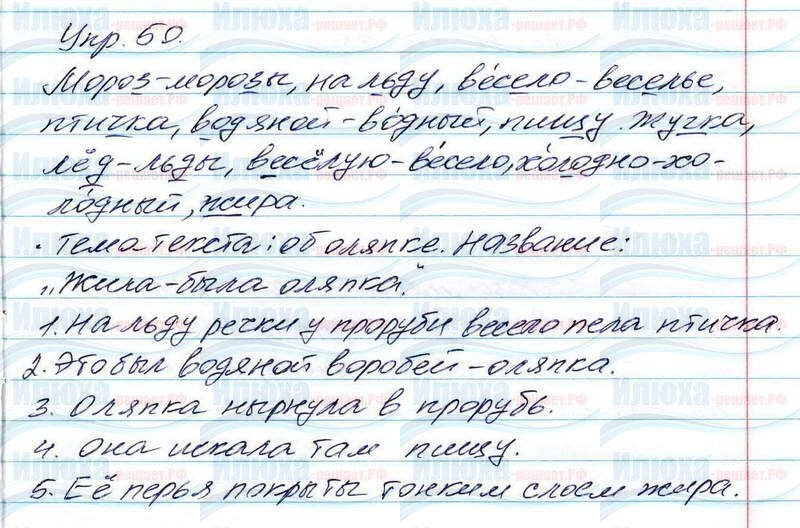 Упр. 50.
Мороз-морозы, на льду, весело - веселье,
птичка, водяной - водный, пищу. Жучка,
лёд - льды, весёлую - весело, холодно - хо-
лодный, жира.
. Тема текста: об оляпке. Название:
„Жила-была оляпка."
1. На льду речки у проруби весело пела птичка.
2. Это был водяной воробей - оляпка.
3. Оляпка нырнула в прорубь.
4. Она искала там пищу.
5. Её перья покрыты тонким слоем жира.